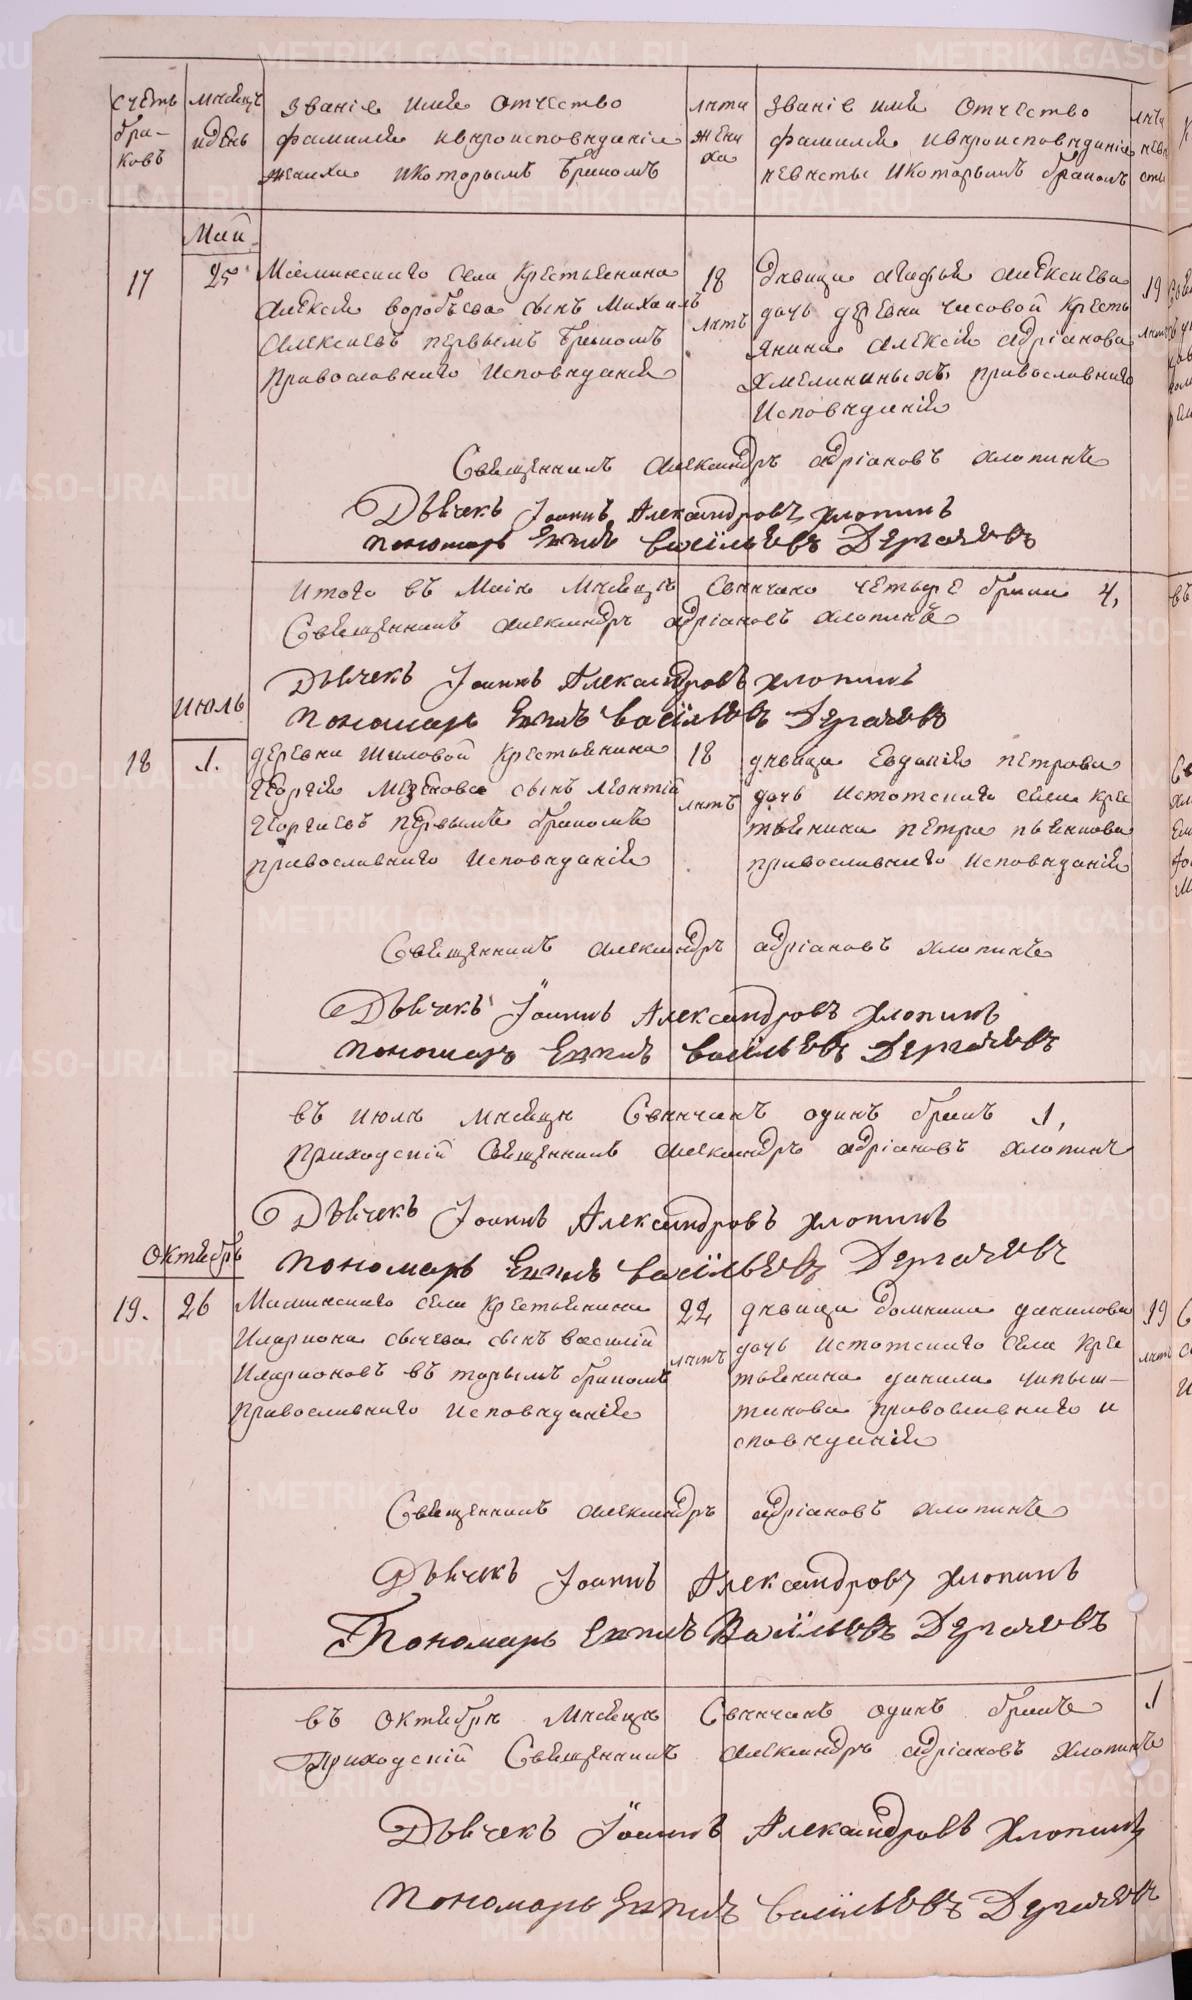 счетъ бра- ковъ
мѣсяцъ и день
Званіе имя отчество
фамилія и вѣроисповѣданіе
жениха и которымъ бракомъ
лѣта жени ха
Званіе имя отчество
фамилія и вѣроисповѣданіе
невѣсты и которымъ бракомъ
Май
17
25
села крестьянина
Алексія воробьева сынъ Михаилъ
Алексіевъ первымъ бракомъ
Православнаго Исповѣданія
18
лѣтъ
дѣвица Агафья Алексіева
дочь деревни Часовой кресть
янина Алексія Адріанова
Хмелининыхъ православнаго
Исповѣданія
19
лѣтъ
Священникъ Александръ Адріановъ Хлопинъ
Дьячекъ Іоаннъ Александровъ Хлопинъ
Пономарь Васильевъ Дергачевъ
Итого въ Маіѣ мѣсяцѣ Свѣнчано четыре брака 4,
Священникъ Александръ Адріановъ Хлопинъ
Дьячекъ Іоаннъ Александровъ Хлопинъ
Пономарь Васильевъ Дергачевъ
Июль
18
1.
деревни Шиловой крестьянина
Георгія сынъ Леонтій
Георгіевъ первымъ бракомъ
православнаго Исповѣданія
18
лѣтъ
дѣвица Евдокія петрова
дочь Истокскаго села крес
тьянина петра пьянкова
православнаго Исповѣданія
Священникъ Александръ Адріановъ Хлопинъ
Дьячекъ Іоаннъ Александровъ Хлопинъ
Пономарь Васильевъ Дергачевъ
въ Июлѣ мѣсяцѣ Свѣнчанъ одинъ бракъ 1,
Приходскій Священникъ Александръ Адріановъ Хлопинъ
Дьячекъ Іоаннъ Александровъ Хлопинъ
Пономарь Васильевъ Дергачевъ
Октябрь
19.
26
села крестьянина
Илариона сычева сынъ василій
Иларионовъ вторымъ бракомъ
Православнаго Исповѣданія
22
лѣтъ
дѣвица Домника данилова
дочь Истокскаго села крес
тьянина данила чипыш-
танова православнаго и
сповѣданія
19
лѣтъ
Священникъ Александръ Адріановъ Хлопинъ
Дьячекъ Іоаннъ Александровъ Хлопинъ
Пономарь Васильевъ Дергачевъ
въ Октябрѣ мѣсяцѣ Свѣнчанъ одинъ бракъ 1
Приходскій Священникъ Александръ Адріановъ Хлопинъ
Дьячекъ Іоаннъ Александровъ Хлопинъ
Пономарь Васильевъ Дергачевъ
METRIKI.GASO-URAL.RU